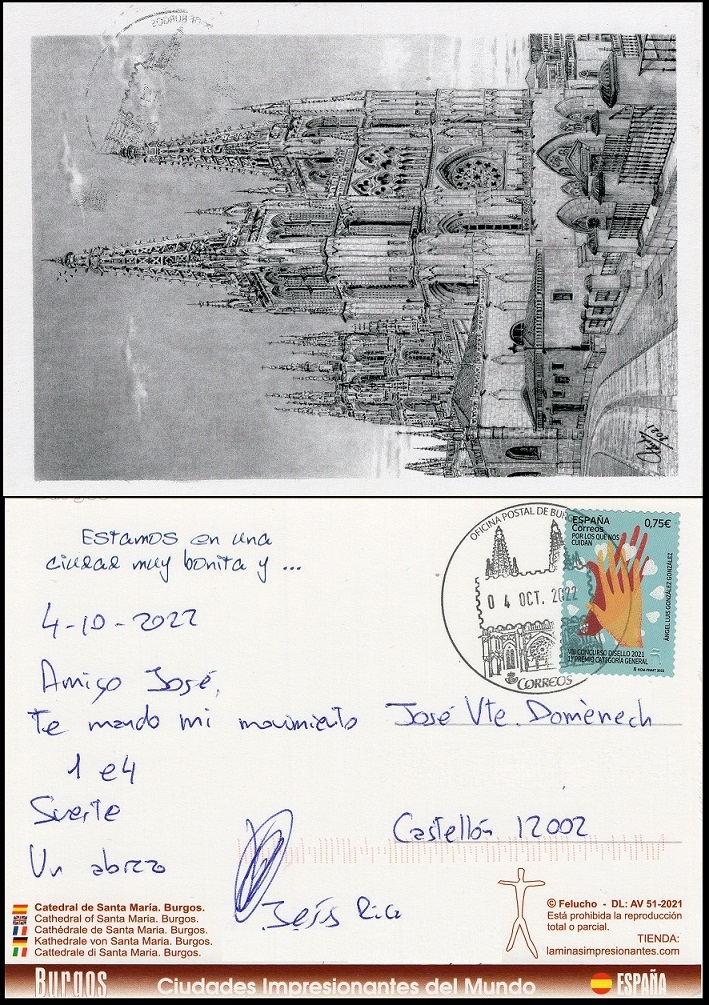 OFICINA POSTAL DE BURGOS
ESTAMOS en una
ciudad muy bonita y ...
04 OCT. 2022
CORREOS
ESPAÑA
Correos
0,75€
POR LOS QUE NOS
CUIDAN
ÁNGEL LUIS GONZÁLEZ GONZÁLEZ
VIII CONCURSO DISELLO 2021
1er PREMIO CATEGORÍA GENERAL
4-10-2022
Amigo José,
te mando mi movimiento
1 e4
Suerte
Un abrazo
Jesús Rica
José Vte. Domènech
Castellón 12002
Catedral de Santa María. Burgos.
Cathedral of Santa Maria. Burgos.
Cathédrale de Santa Maria. Burgos.
Kathedrale von Santa Maria. Burgos.
Cattedrale di Santa Maria. Burgos.
© Felucho - DL: AV 51-2021
Está prohibida la reproducción
total o parcial.
TIENDA:
laminasimpresionantes.com
Burgos
Ciudades Impresionantes del Mundo
ESPAÑA